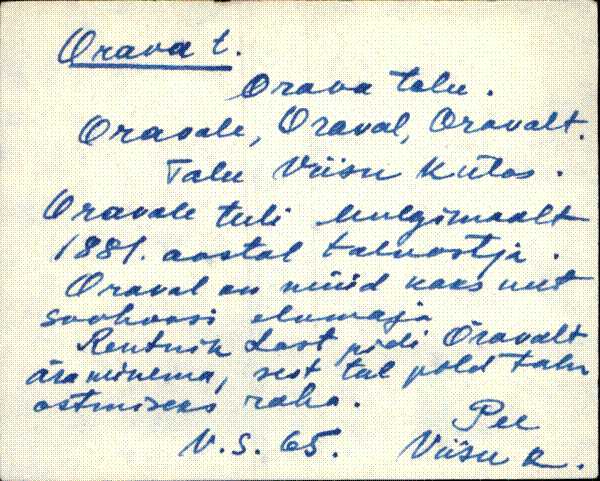 Orava t.
Orava talu.
Oravale, Oraval, Oravalt.
Talu Viisu külas.
Oravale tuli mulgimaalt
1881. aastal taluostja.
Oraval on nüüd kaks uut
sovhoosi elumaja
Rentnik Last pidi Oravalt
ära minema, sest tal põld talu
ostmiseks raha.
Pee
V.S. 65. Viisu k.